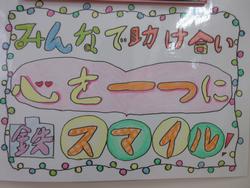 みんなで助け合い
心を一つに
鉄スマイル!